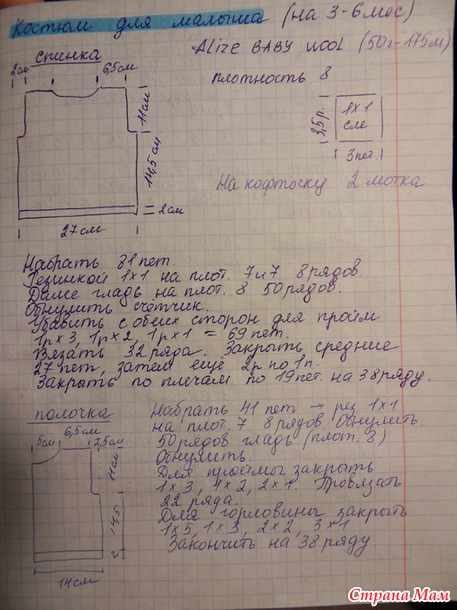 Костюм для малыша (на 3-6 мес)
Alize BABY WOOL (50г-175м)
спинка
плотность 8
2см
6,5см
11см
14,5см
2см
27см
3,5р.
1х1
см
3пет.
На кофточку 2 мотка
Набрать 81 пет.
Резинкой 1х1 на плот. 7и7 8 рядов.
Далее гладь на плот. 8 50 рядов.
Обнулить счётчик.
Убавить с обеих сторон для пройм
1рх3, 1рх2, 1рх1 = 69 пет.
Вязать 32 ряда. Закрыть средние
27 пет, затем ещё 2р по 1п.
Закрыть по плечам по 19 пет. на 38 ряду.
полочка
6,5см
5см
2,5см
11см
14,5
2
14см
Набрать 41 пет → рез 1х1
на плот. 7 8 рядов Обнулить.
50 рядов гладь (плот. 8)
Обнулить.
Для проймы закрыть
1х3, 1х2, 2х1. Провязать
22 ряда.
Для горловины закрыть
1х5, 1х3, 2х2, 3х1
Закончить на 38 ряду.
Страна Мам